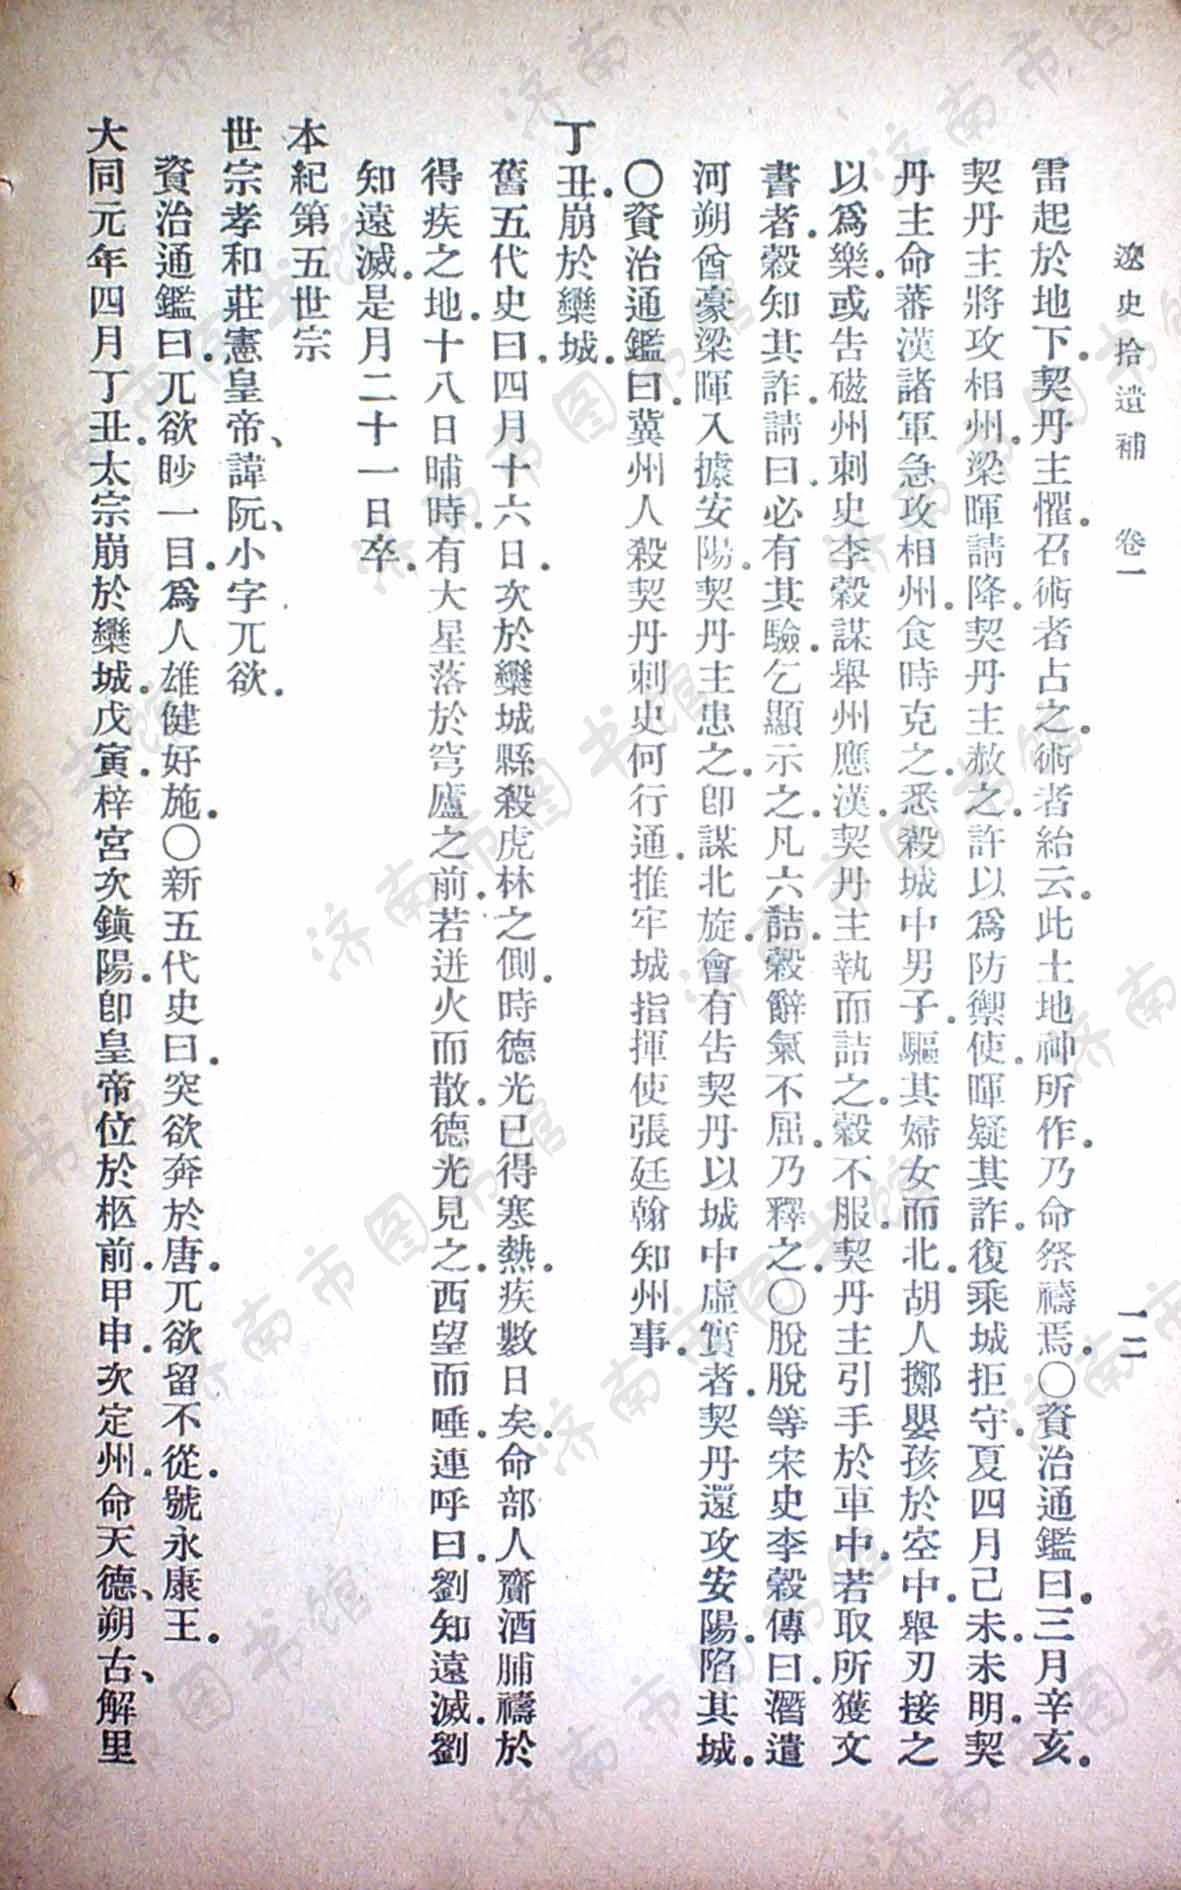 遼史拾遺補　卷一　一二
雷起於地下。契丹主懼。召術者占之。術者紿云。此土地神所作。乃命祭禱焉。〇資治通鑑曰。三月辛亥。
契丹主將攻相州。梁暉請降。契丹主赦之。許以爲防禦使。暉疑其詐。復乘城拒守。夏四月己未。未明。契
丹主命蕃漢諸軍急攻相州。食時克之。悉殺城中男子。驅其婦女而北。胡人擲嬰孩於空中。舉刃接之
以爲樂。或告磁州刺史李穀謀舉州應漢。契丹主執而詰之。穀不服。契丹主引手於車中。若取所獲文
書者。穀知其詐。請曰。必有其驗。乞顯示之。凡六詰。穀辭氣不屈。乃釋之。〇脫脫等宋史李穀傳曰。潛遣
河朔酋豪梁暉入據安陽。契丹主患之。卽謀北旋。會有告契丹以城中虛實者。契丹還攻安陽。陷其城。
〇資治通鑑曰。冀州人殺契丹刺史何行通。推牢城指揮使張廷翰知州事。
丁丑。崩於欒城。
舊五代史曰。四月十六日。次於欒城縣殺虎林之側。時德光已得寒熱疾數日矣。命部人齎酒脯禱於
得疾之地。十八日晡時。有大星落於穹廬之前。若迸火而散。德光見之。西望而唾。連呼曰。劉知遠滅。劉
知遠滅。是月二十一日卒。
本紀第五世宗
世宗孝和莊憲皇帝、諱阮、小字兀欲。
資治通鑑曰。兀欲眇一目。爲人雄健好施。〇新五代史曰。突欲奔於唐。兀欲留不從。號永康王。
大同元年四月丁丑。太宗崩於欒城。戊寅。梓宮次鎭陽。卽皇帝位於柩前。甲申。次定州。命天德、朔古、解里
济南市图书馆